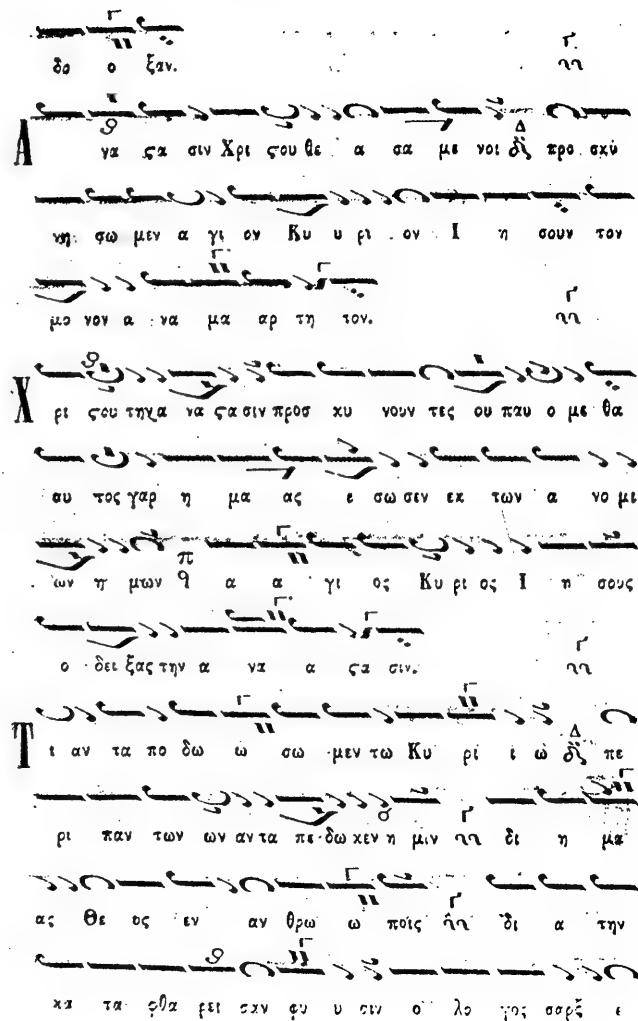 δο ο ξαν.
Α να ϛα σιν Χρι ϛου θε α σα με νοι προ σκύ
νη σω μεν α γι ον Κυ υ ρι ον Ι η σουν τον
μο νον α να μα αρ τη τον.
Χ ρι ϛου την α να ϛα σιν προσ κυ νουν τες ου παυ ο με θα
αυ τος γαρ η μα ας ε σω σεν εκ των α νο μι
ων η μων α α γι ος Κυ ρι ος Ι η σους
ο δει ξας την α να α ϛα σιν.
Τ ι αν τα πο δω ώ σω μεν τω Κυ ρί ι ῳ πε
ρι παν των ων αν τα πε δω κεν η μιν δι η μα
ας Θε ος εν αν θρω ω ποις δι α την
κα τα φθα ρει σαν φυ υ σιν ο λο γος σαρξ ε